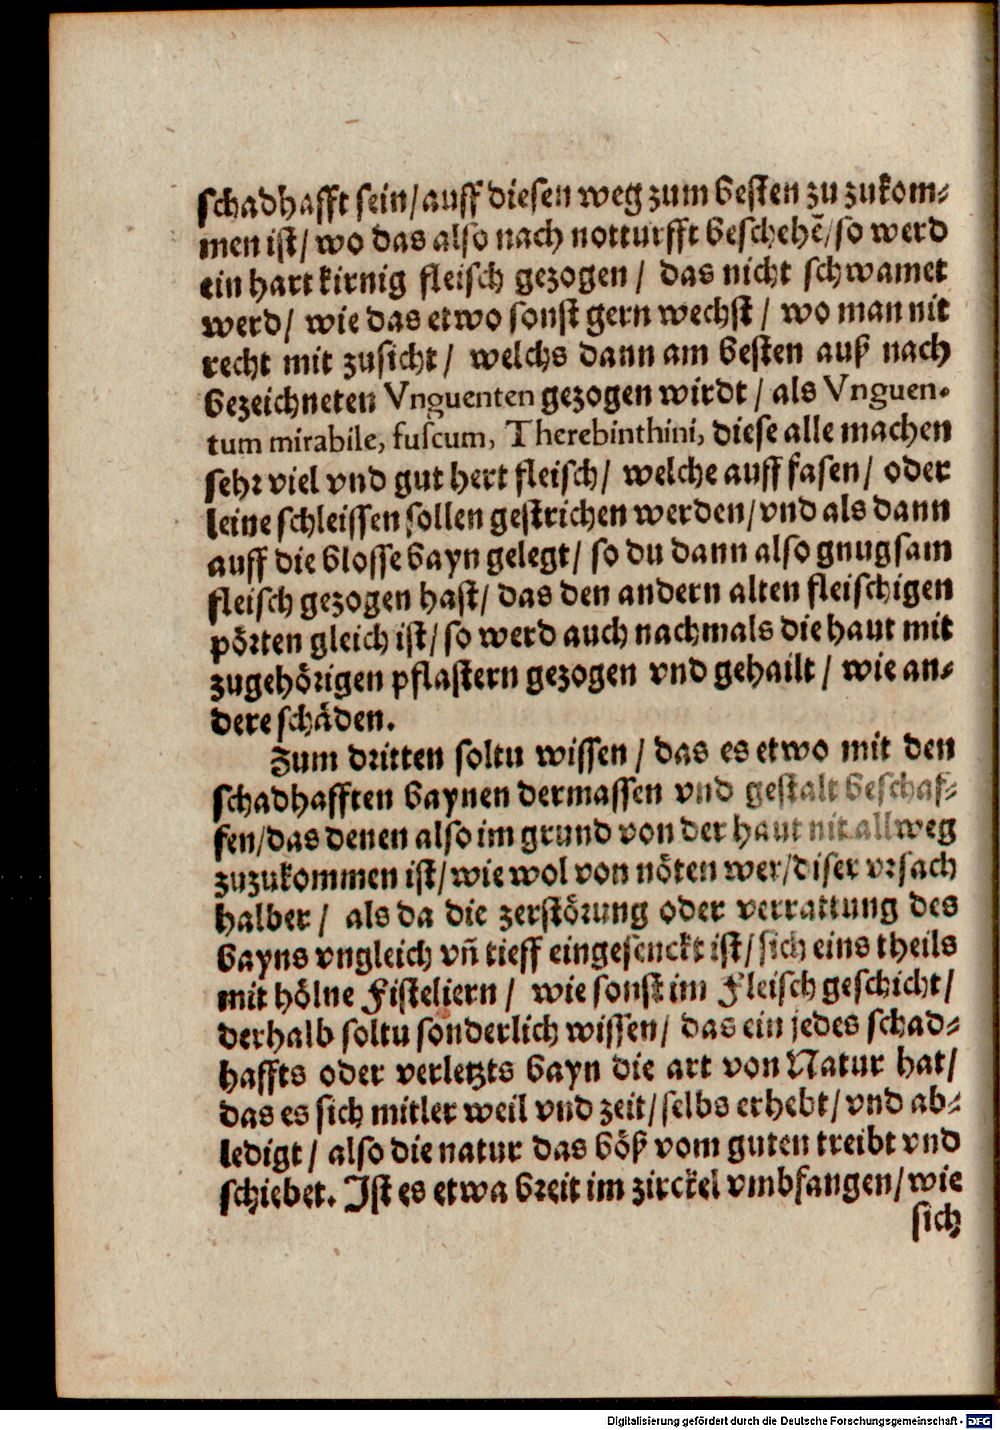 schadhafft sein/ auff diesen weg zum besten zu zukom-
men ist/ wo das also nach notturfft beschehẽ/ so werd
ein hart kirnig fleisch gezogen/ das nicht schwamet
werd/ wie das etwo sonst gern wechst/ wo man nit
recht mit zusicht/ welchs dann am besten auß nach
bezeichneten Vnguenten gezogen wirdt/ als Vnguen-
tum mirabile, fuscum, Therebinthini, diese alle machen
sehr viel vnd gut hert fleisch/ welche auff fasen/ oder
leine schleissen sollen gestrichen werden/ vnd als dann
auff die blosse bayn gelegt/ so du dann also gnugsam
fleisch gezogen hast/ das den andern alten fleischigen
pörten gleich ist/ so werd auch nachmals die haut mit
zugehörigen pflastern gezogen vnd gehailt/ wie an-
dere schäden.
Zum dritten soltu wissen/ das es etwo mit den
schadhafften baynen dermassen vnd gestalt beschaf-
fen/ das denen also im grund von der haut nit allweg
zuzukommen ist/ wie wol von nöten wer/ diser vrsach
halber/ als da die zerstörung oder verrattung des
bayns vngleich vñ tieff eingesenckt ist/ sich eins theils
mit hölne Fisteliern/ wie sonst im Fleisch geschicht/
derhalb soltu sonderlich wissen/ das ein jedes schad-
haffts oder verletzts bayn die art von Natur hat/
das es sich mitler weil vnd zeit/ selbs erhebt/ vnd ab-
ledigt/ also die natur das böß vom guten treibt vnd
schiebet. Ist es etwa breit im zirckel vmbfangen/ wie
sich
Digitalisierung gefördert durch die Deutsche Forschungsgemeinschaft - DFG